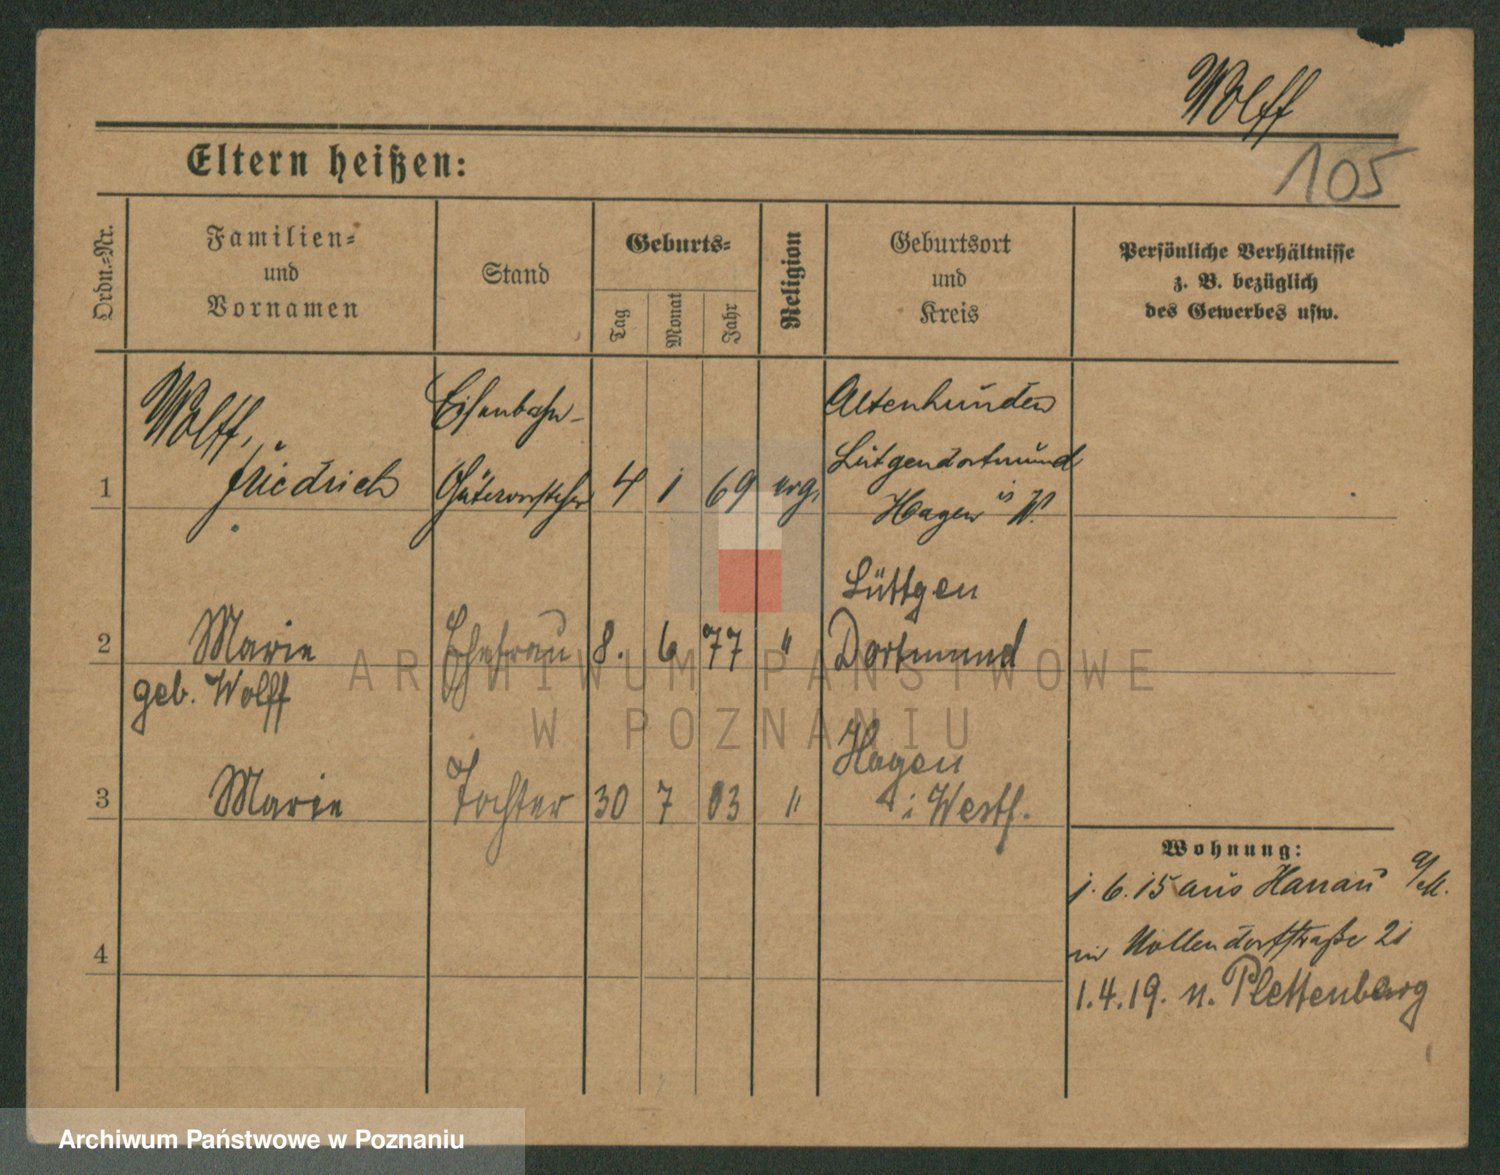 Wolff
105
Eltern heißen:
Ordn.-Nr.
Familien-
und
Vornamen
Stand
Geburts-
Tag
Monat
Jahr
Religion
Geburtsort
und
Kreis
Persönliche Verhältnisse
z. B. bezüglich
des Gewerbes usw.
1
Wolff,
Friedrich
Eisenbahn-
Gütervorsteher
4 1 69
Altenhunden
Lütgendortmund
Hagen i/W.
2
Marie
geb. Wolff
Ehefrau
8. 6 77 "
Lüttgen
Dortmund
3
Marie
Tochter
30 7 03 "
Hagen
i Westf.
4
Wohnung:
1.6.15 aus Hanau a/M.
in Nollendorfstraße 21
1.4.19. n. Plettenberg
ARCHIWUM PAŃSTWOWE
W POZNANIU
Archiwum Państwowe w Poznaniu